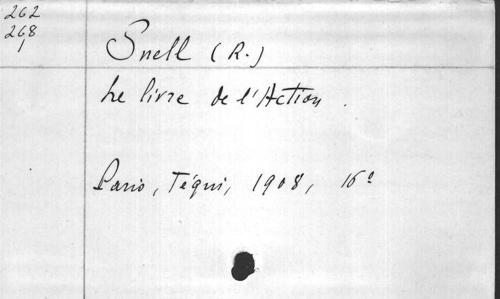 262
268
1
Snell (R.)
Le livre de l'Action.
Paris, Téqui, 1908, 16º